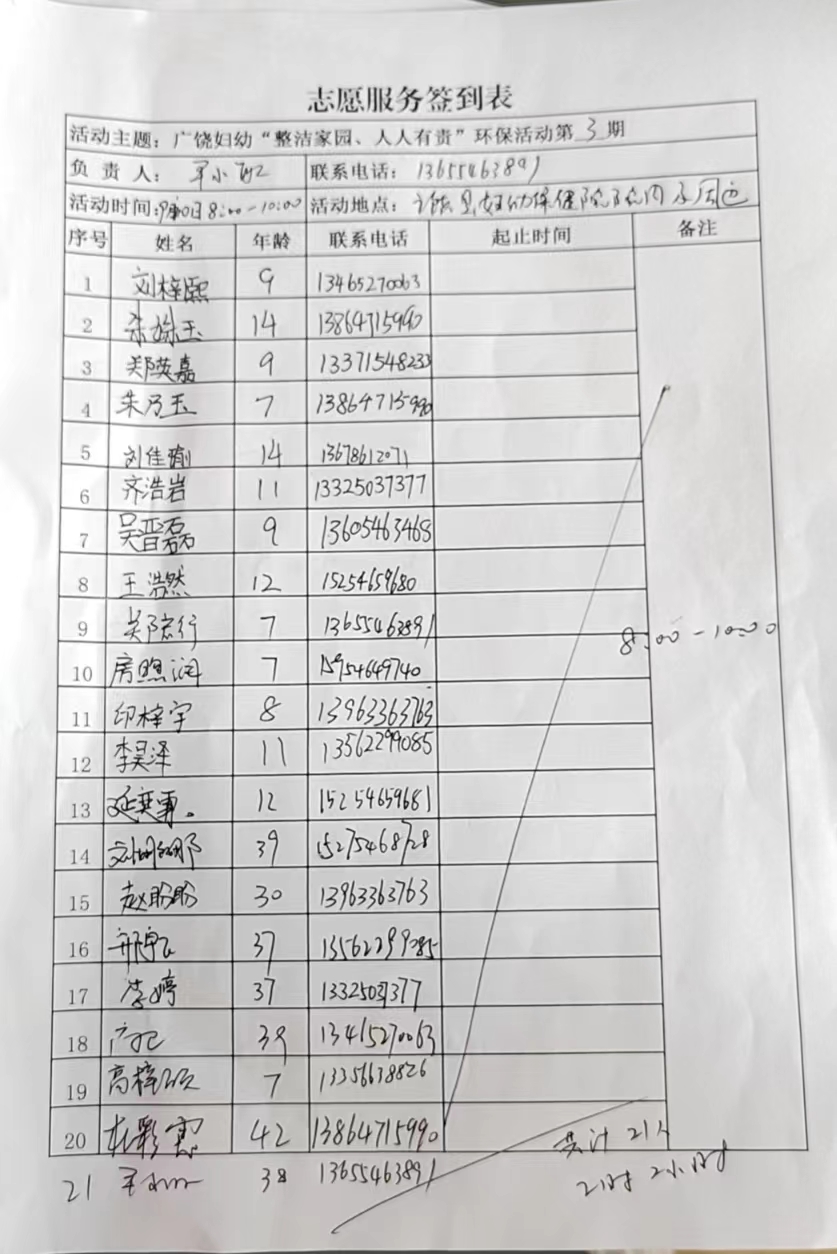 志愿服务签到表
活动主题：广饶妇幼“整洁家园、人人有责”环保活动第3期
负责人： 联系电话：13655463891
活动时间: 8:00-10:00 活动地点：广饶县妇幼保健院院内及周边
序号 姓名 年龄 联系电话 起止时间 备注
1 刘梓熙 9 13465270063
2 朱姝玉 14 13864715990
3 郑英嘉 9 13371548233
4 朱乃玉 7 13864715990
5 刘佳瑜 14 13678612071
6 齐浩岩 11 13325037377
7 吴晋磊 9 13605463468
8 王浩然 12 15254659680
9 郑宏行 7 13655463891
8:00-10:00
10 房照润 7 15954649740
11 印梓宇 8 13963363763
12 李昊泽 11 13562299085
13 12 15254659681
14 39 15275468728
15 赵盼盼 30 13963363763
16 37
17 李婷 37 13325037377
18 39 13415270063
19 高梓硕 7 13356638826
20 42 13864715990
共计21人
21 38 13655463891
2小时